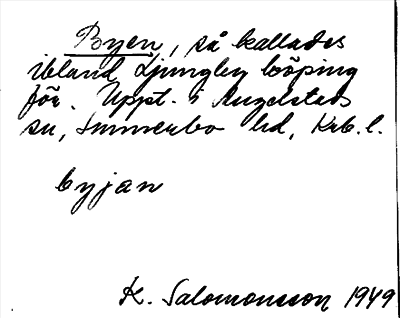 Byen, så kallades
ibland Ljungby köping
för. Uppt. i Angelstads
sn, Sunnerbo hd, Krb. l.
byjan
K. Salomonsson 1949